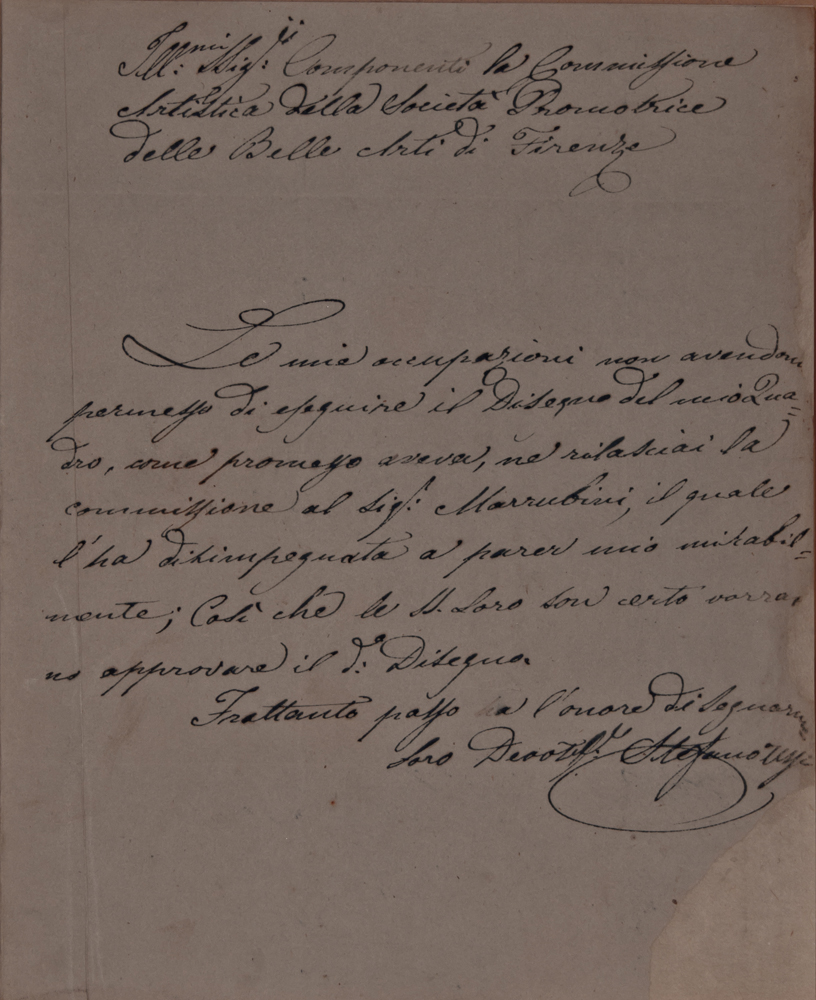 Ill:mi Sig:ii Componenti la Commissione
Artistica della Società Promotrice
delle Belle Arti di Firenze
Le mie occupazioni non avendomi
permesso di eseguire il Disegno del mio Qua=
dro, come promesso aveva, ne rilasciai la
commissione al Sig:r Marrubini, il quale
l'ha disimpegnata a parer mio mirabil=
mente; Così che le SS. Loro son certo vorran
no approvare il d:o Disegno.
Frattanto passo a l'onore di segnarmi
Loro Devotiss:o Stefano Ussi